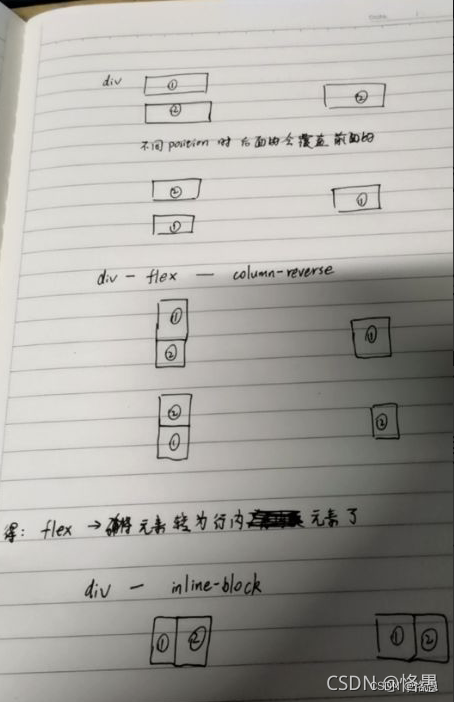 div ①
② ②
不同position时后面的会覆盖前面的
② ①
①
div - flex — column-reverse
①
② ①
②
① ②
得: flex → 元素转为行内 元素了
div — inline-block
① ② ① ②
CSDN @恪愚